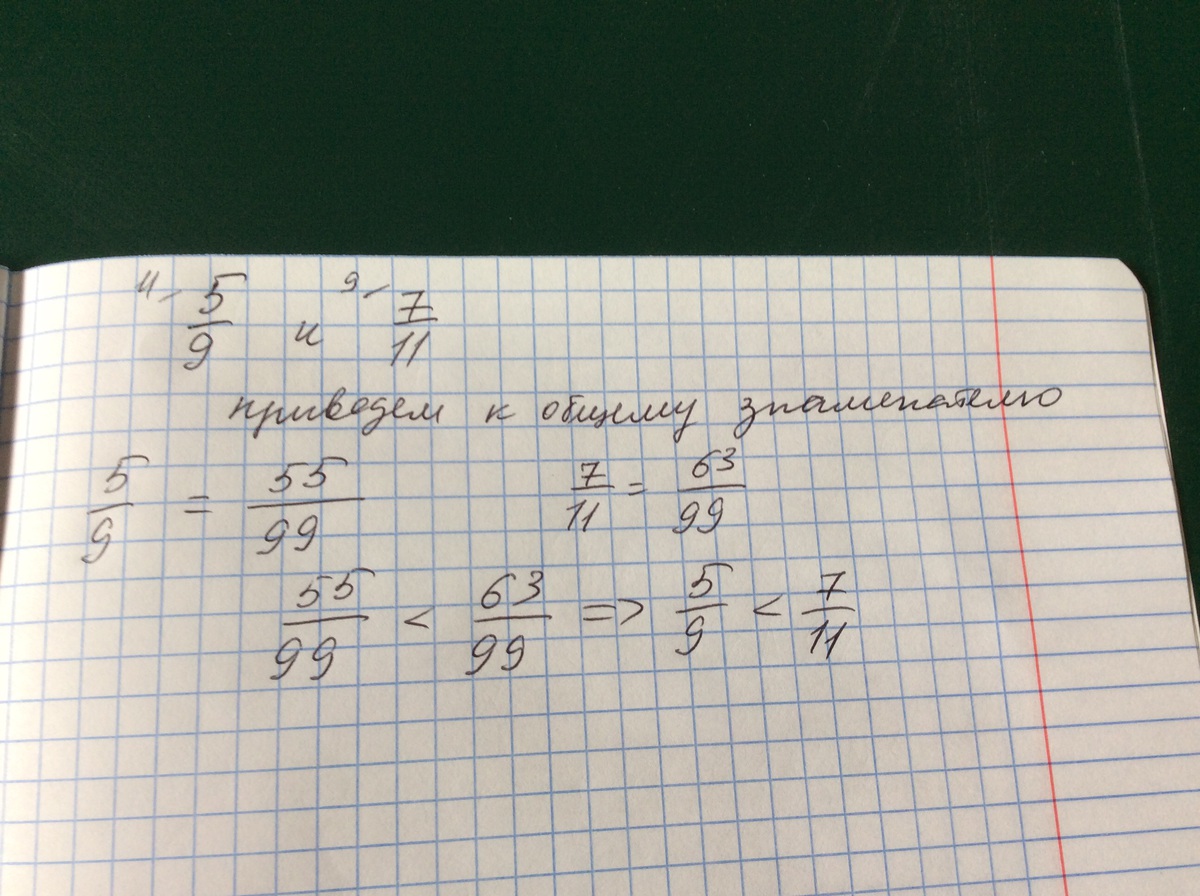 11/ 5/9 и 9/ 7/11
приведем к общему знаменателю
5/9 = 55/99 7/11 = 63/99
55/99 < 63/99 => 5/9 < 7/11